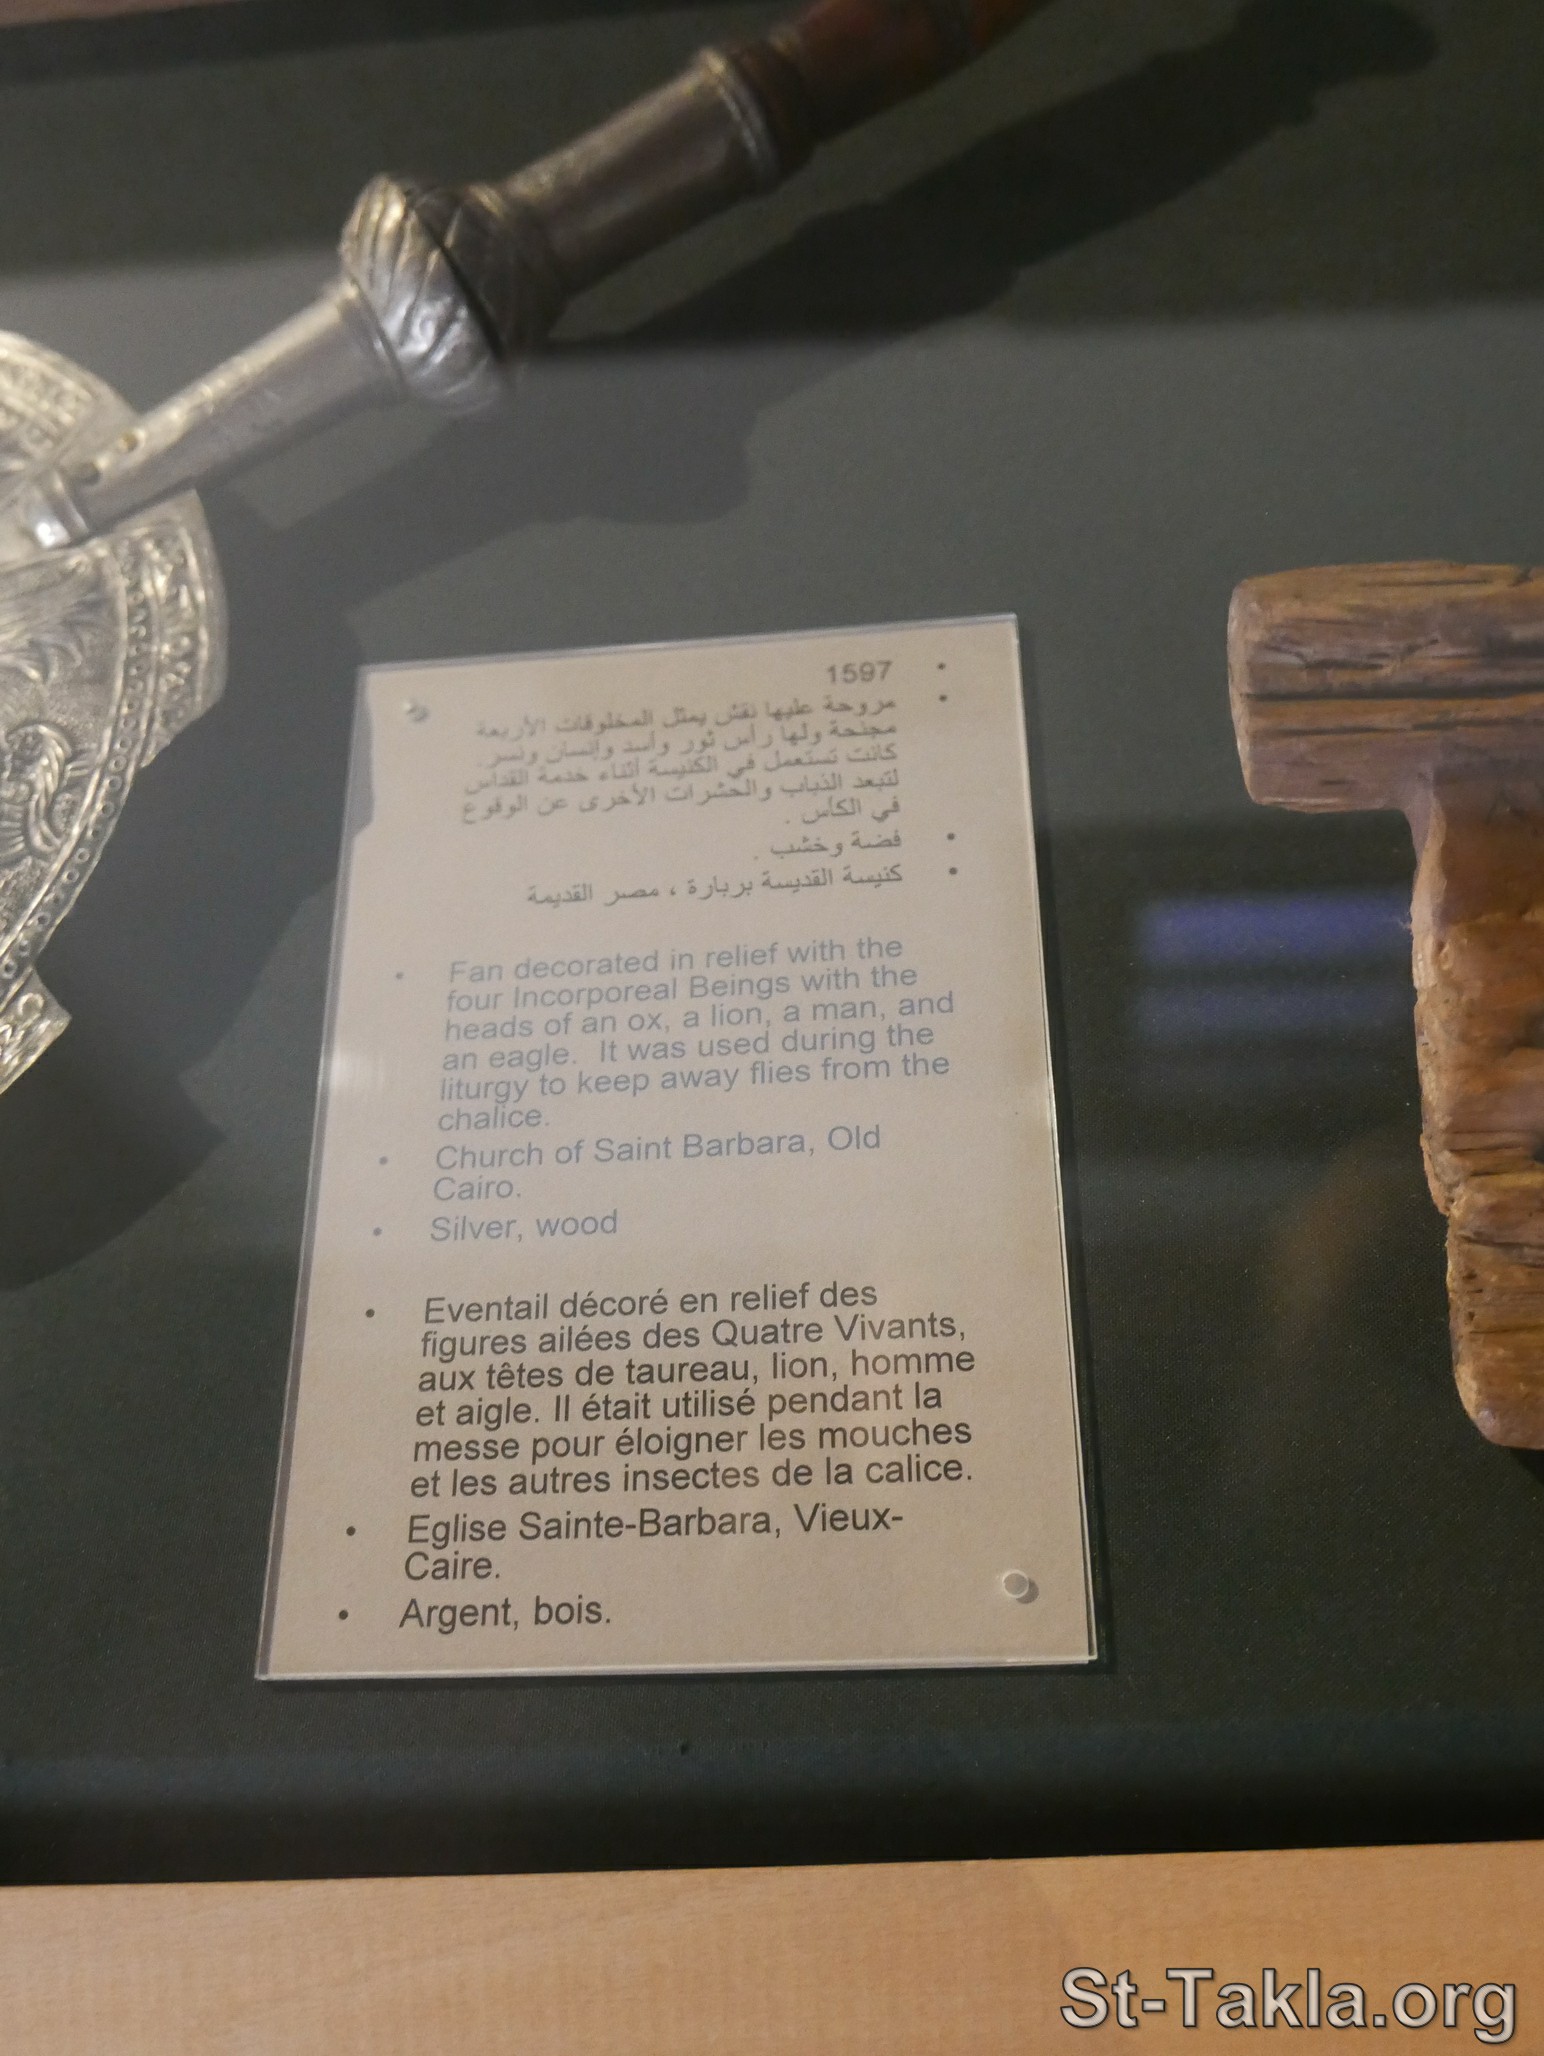 • 1597
• مروحة عليها نقش يمثل المخلوقات الأربعة
مجنحة ولها رأس ثور وأسد وإنسان ونسر .
كانت تستعمل في الكنيسة أثناء خدمة القداس
لتبعد الذباب والحشرات الأخرى عن الوقوع
في الكأس .
• فضة وخشب .
• كنيسة القديسة بربارة ، مصر القديمة
• Fan decorated in relief with the
four Incorporeal Beings with the
heads of an ox, a lion, a man, and
an eagle. It was used during the
liturgy to keep away flies from the
chalice.
• Church of Saint Barbara, Old
Cairo.
• Silver, wood
• Eventail décoré en relief des
figures ailées des Quatre Vivants,
aux têtes de taureau, lion, homme
et aigle. Il était utilisé pendant la
messe pour éloigner les mouches
et les autres insectes de la calice.
• Eglise Sainte-Barbara, Vieux-
Caire.
• Argent, bois.
St-Takla.org